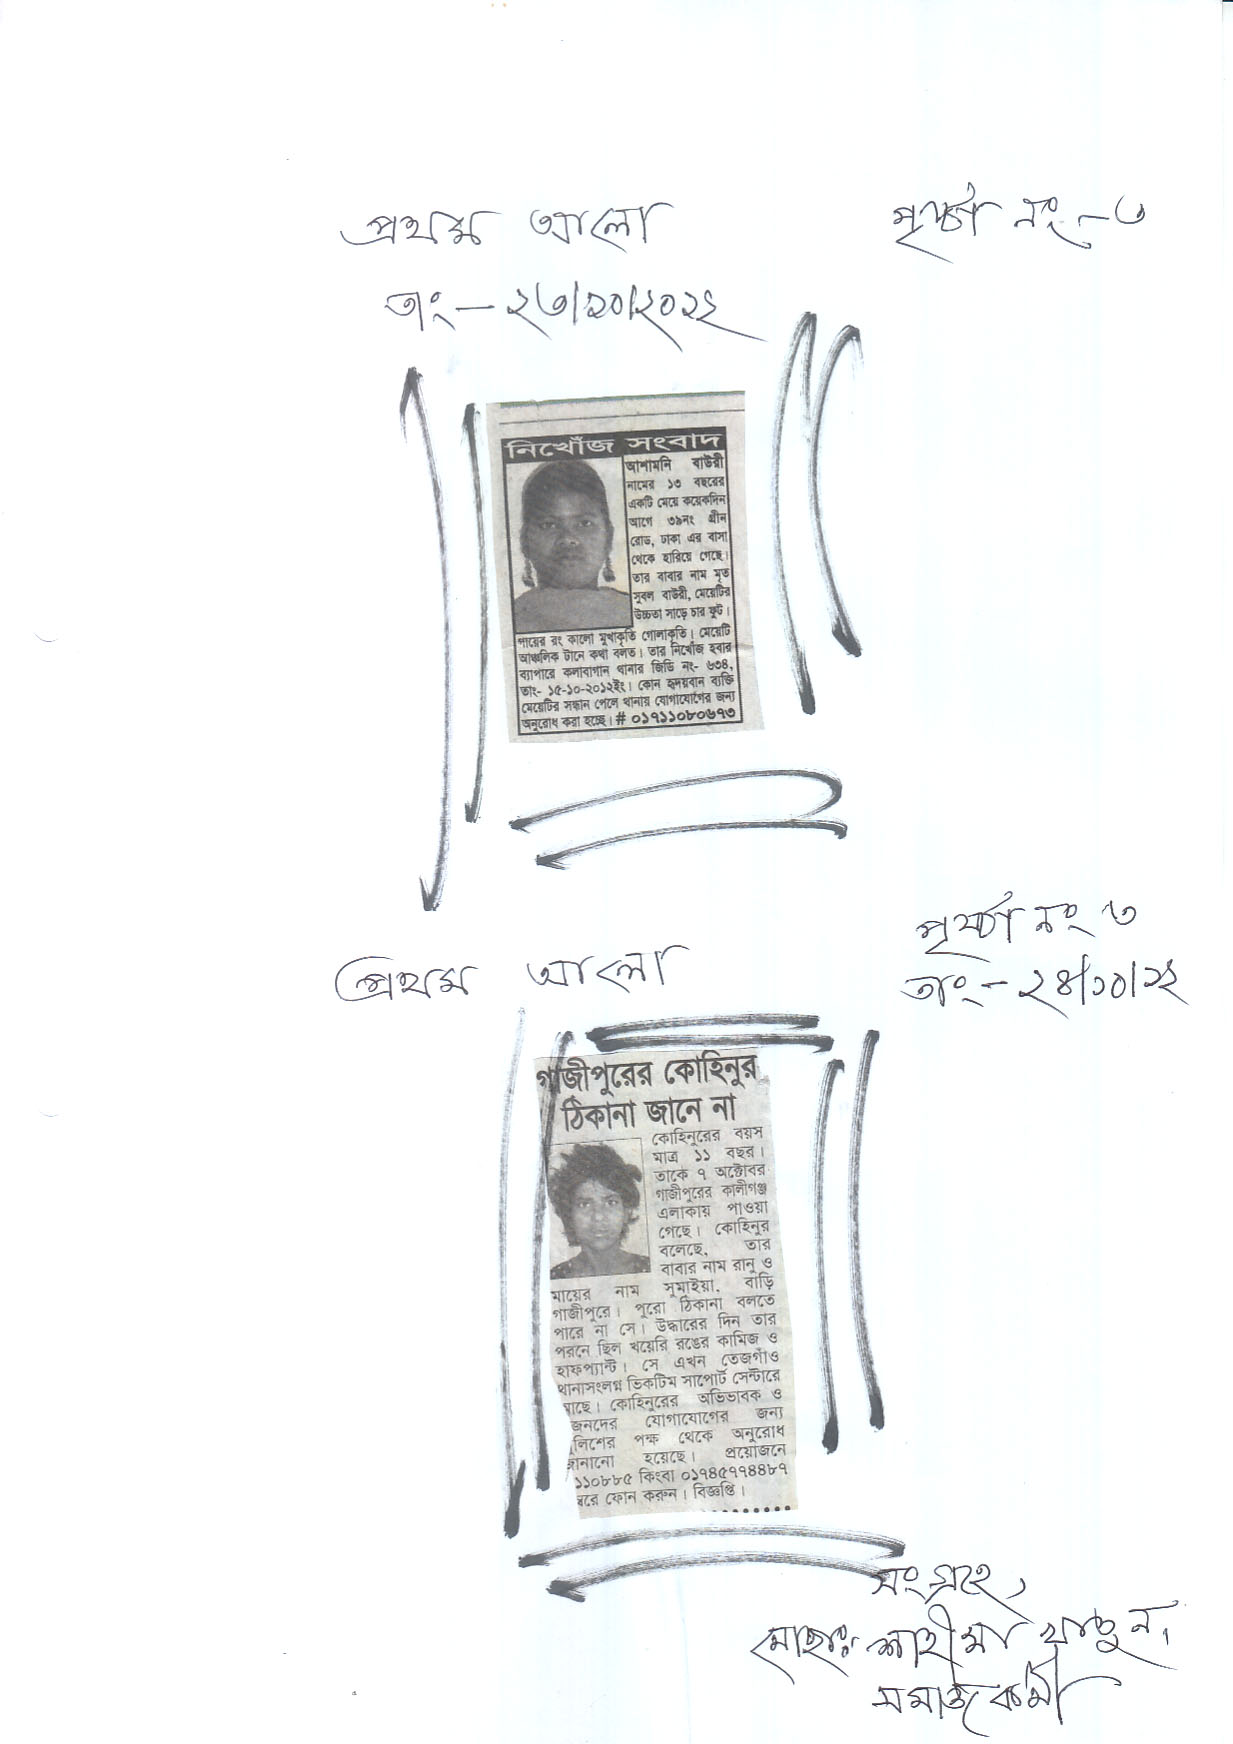 প্রথম আলো
পৃষ্ঠা নং-৩
তাং-২৩/১০/২০১২
নিখোঁজ সংবাদ
আশামনি বাউরী
নামের ১৩ বছরের
একটি মেয়ে কয়েকদিন
আগে ৩৯নং গ্রীন
রোড, ঢাকা এর বাসা
থেকে হারিয়ে গেছে।
তার বাবার নাম মৃত
সুবল বাউরী, মেয়েটির
উচ্চতা সাড়ে চার ফুট।
গায়ের রং কালো মুখাকৃতি গোলাকৃতি। মেয়েটি
আঞ্চলিক টানে কথা বলত। তার নিখোঁজ হবার
ব্যাপারে কলাবাগান থানার জিডি নং- ৬৩৪,
তাং- ১৫-১০-২০১২ইং। কোন হৃদয়বান ব্যক্তি
মেয়েটির সন্ধান পেলে থানায় যোগাযোগের জন্য
অনুরোধ করা হচ্ছে। # ০১৭১১০৮০৬৭৩
পৃষ্ঠা নং ৩
প্রথম আলো
তাং-২৪/১০/১২
গাজীপুরের কোহিনুর
ঠিকানা জানে না
কোহিনুরের বয়স
মাত্র ১১ বছর।
তাকে ৭ অক্টোবর
গাজীপুরের কালীগঞ্জ
এলাকায় পাওয়া
গেছে। কোহিনুর
বলেছে, তার
বাবার নাম রানু ও
মায়ের নাম সুমাইয়া, বাড়ি
গাজীপুরে। পুরো ঠিকানা বলতে
পারে না সে। উদ্ধারের দিন তার
পরনে ছিল খয়েরি রঙের কামিজ ও
হাফপ্যান্ট। সে এখন তেজগাঁও
থানাসংলগ্ন ভিকটিম সাপোর্ট সেন্টারে
াছে। কোহিনুরের অভিভাবক ও
জনদের যোগাযোগের জন্য
ুলিশের পক্ষ থেকে অনুরোধ
জানানো হয়েছে। প্রয়োজনে
১১০৮৮৫ কিংবা ০১৭৪৫৭৭৪৪৮৭
্বরে ফোন করুন। বিজ্ঞপ্তি।
সংগ্রহে,
মোছাঃ শাহীমা খাতুন,
সমাজকর্মী